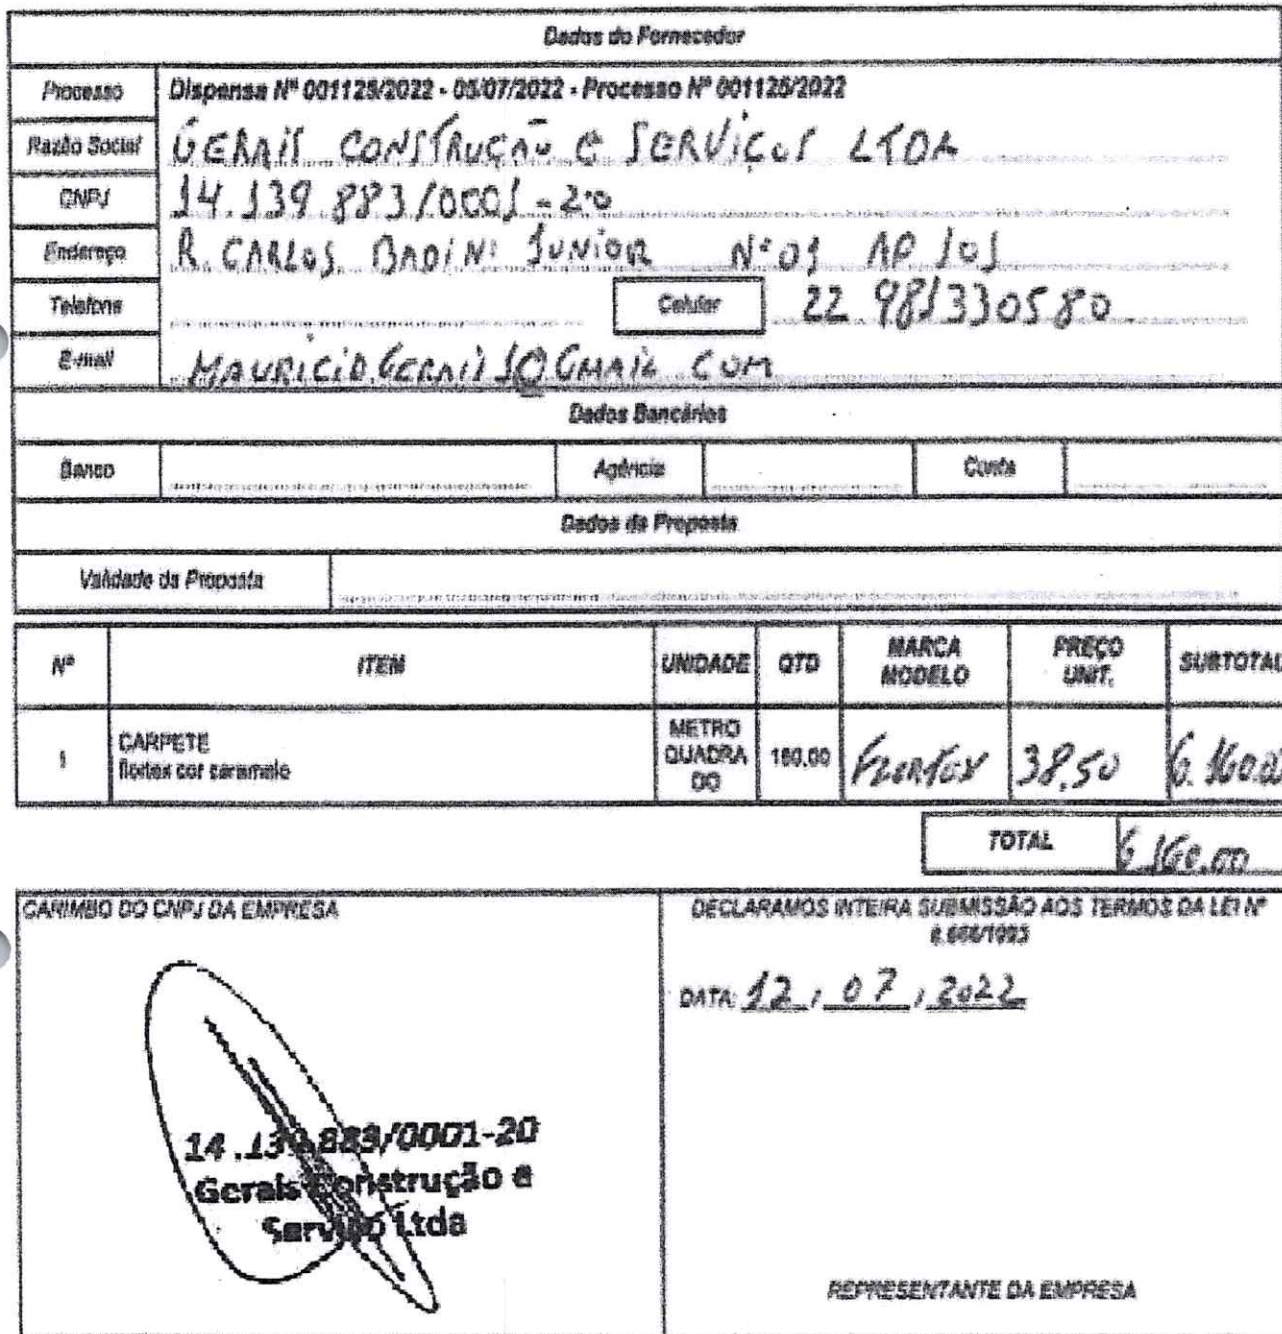 Dados do Fornecedor
Processo Dispensa Nº 001125/2022 - 05/07/2022 - Processo Nº 001125/2022
Razão Social GERAIS CONSTRUÇÃO E SERVIÇOS LTDA
CNPJ 14.139.883/0001-20
Endereço R. CARLOS BADINI JUNIOR Nº 01 AP 101
Telefone Celular 22 981330580
E-mail MAURICIO.GERAIS10@GMAIL.COM
Dados Bancários
Banco Agência Conta
Dados da Proposta
Validade da Proposta
Nº ITEM UNIDADE QTD MARCA MODELO PREÇO UNIT. SUBTOTAL
1 CARPETE flortex cor caramelo METRO QUADRADO 160,00 FLORTEX 38,50 6.160.00
TOTAL 6.160.00
CARIMBO DO CNPJ DA EMPRESA
DECLARAMOS INTEIRA SUBMISSÃO AOS TERMOS DA LEI Nº
8.666/1993
DATA: 12 / 07 / 2022
14.139.883/0001-20
Gerais Construção e
Serviço Ltda
REPRESENTANTE DA EMPRESA